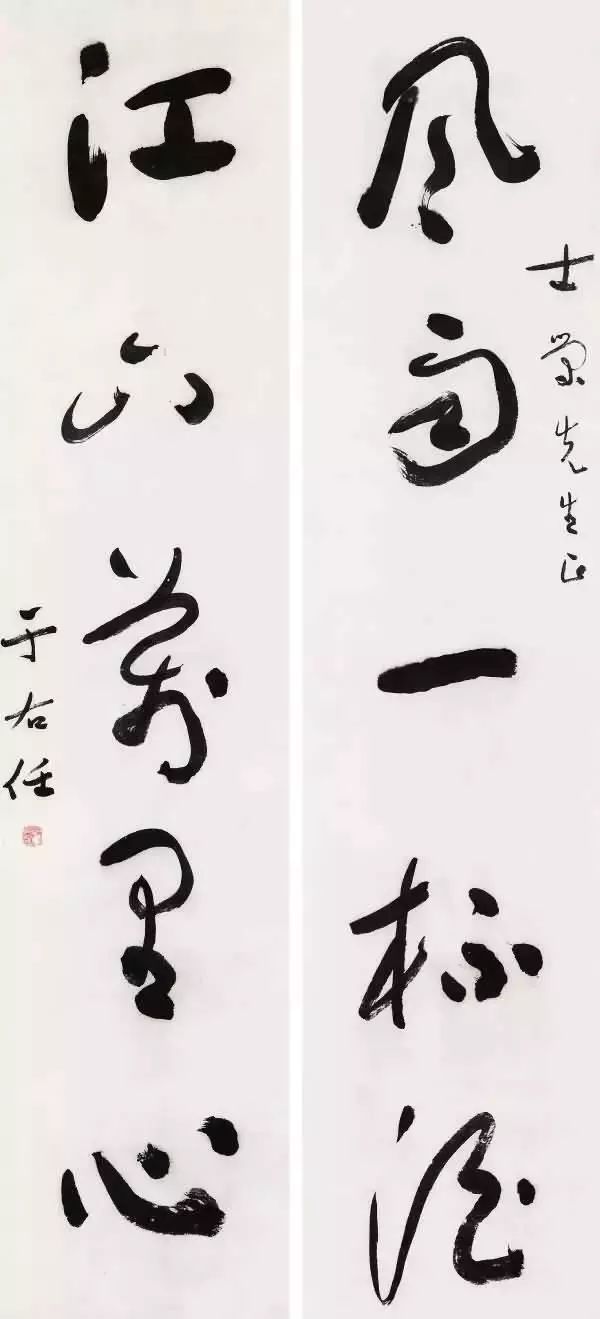 風雨一杯酒
士榮先生正
江山萬里心
于右任